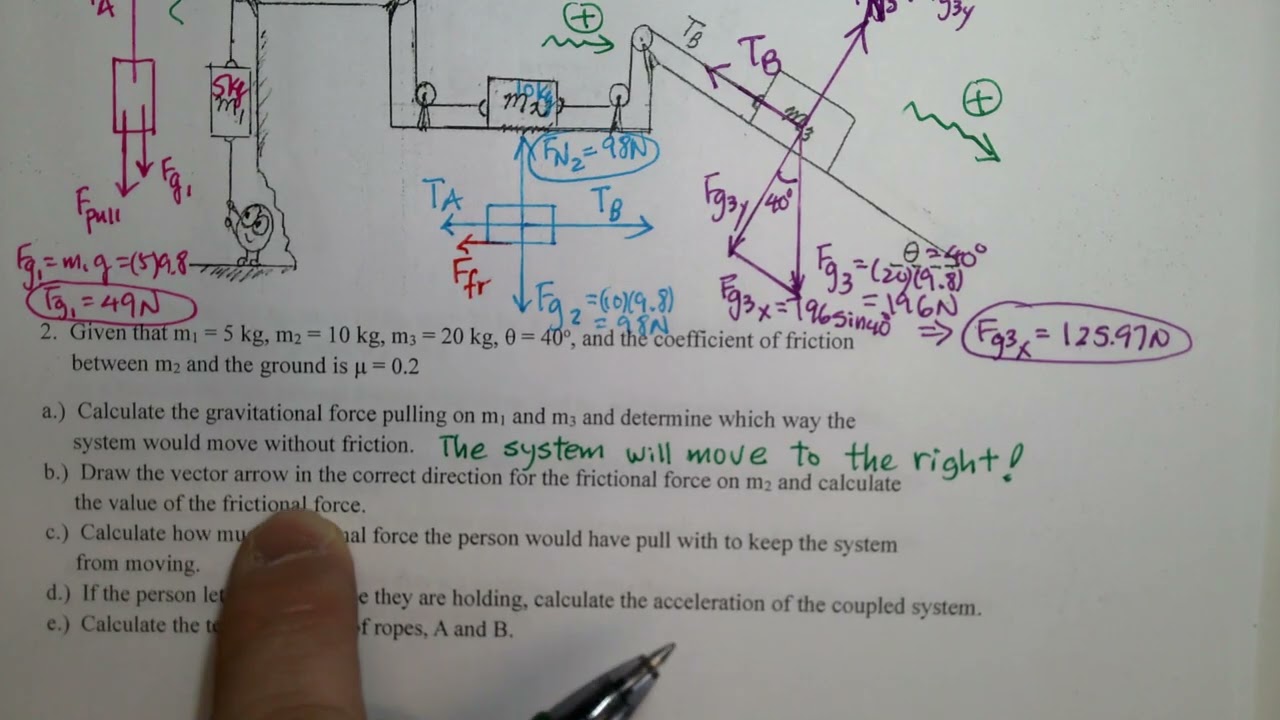 A
N₃
Fg3y
5kg
m₁
10kg
m₂
T_B
T_B
m₃
F_N₂ = 98N
T_A
T_B
F_g₁
F_pull
F_fr
Fg3y
40°
θ = 40°
F_g₁ = m₁g = (5)9.8
F_g₁ = 49N
F_g₂ = (10)(9.8)
= 98N
F_g₃ = (20)(9.8)
= 196N
Fg3x = 196sin40° ⇒ Fg3x = 125.97N
2. Given that m₁ = 5 kg, m₂ = 10 kg, m₃ = 20 kg, θ = 40°, and the coefficient of friction
between m₂ and the ground is μ = 0.2
a.) Calculate the gravitational force pulling on m₁ and m₃ and determine which way the
system would move without friction. The system will move to the right!
b.) Draw the vector arrow in the correct direction for the frictional force on m₂ and calculate
the value of the frictional force.
c.) Calculate how mu al force the person would have pull with to keep the system
from moving.
d.) If the person let e they are holding, calculate the acceleration of the coupled system.
e.) Calculate the te f ropes, A and B.